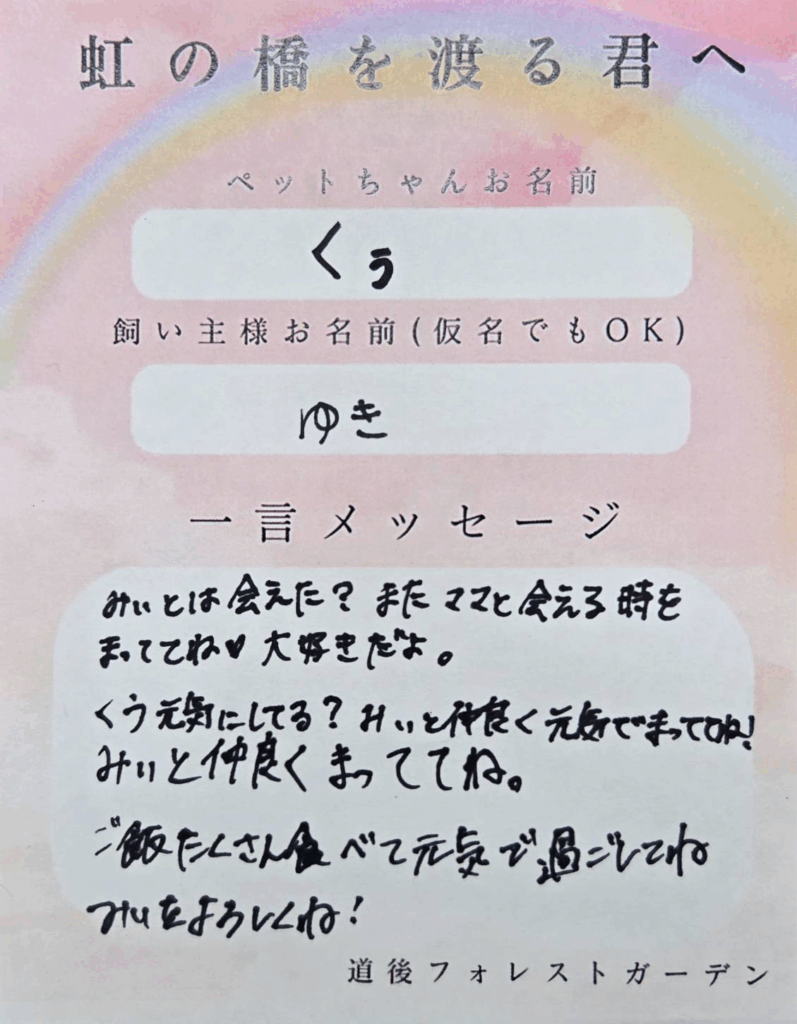 虹の橋を渡る君へ
ペットちゃんお名前
くぅ
飼い主様お名前(仮名でもOK)
ゆき
一言メッセージ
みぃとは会えた？またママと会える時を
まっててね♥大好きだよ。
くう元気にしてる？みぃと仲良く元気でまっててね!
みぃと仲良くまっててね。
ご飯たくさん食べて元気で過ごしてね
みぃをよろしくね!
道後フォレストガーデン